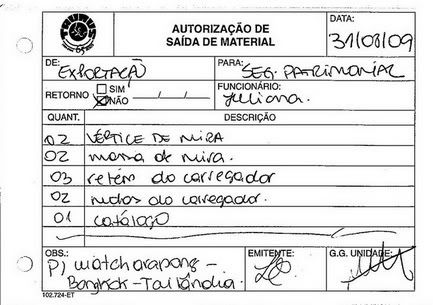 65
AUTORIZAÇÃO DE
SAÍDA DE MATERIAL
DATA:
31/08/09
DE:
EXPORTAÇÃO
PARA:
SEG. PATRIMONIAL
RETORNO
SIM
NÃO
FUNCIONÁRIO:
Juliana.
QUANT.
DESCRIÇÃO
02 VÉRTICE DE MIRA
02 massa de mira.
03 retém do carregador
02 molas do carregador.
01 catálogo
OBS.:
P/ Watcharapong -
Bangkok - Tailândia.
EMITENTE:
G.G. UNIDADE:
102.724-ET